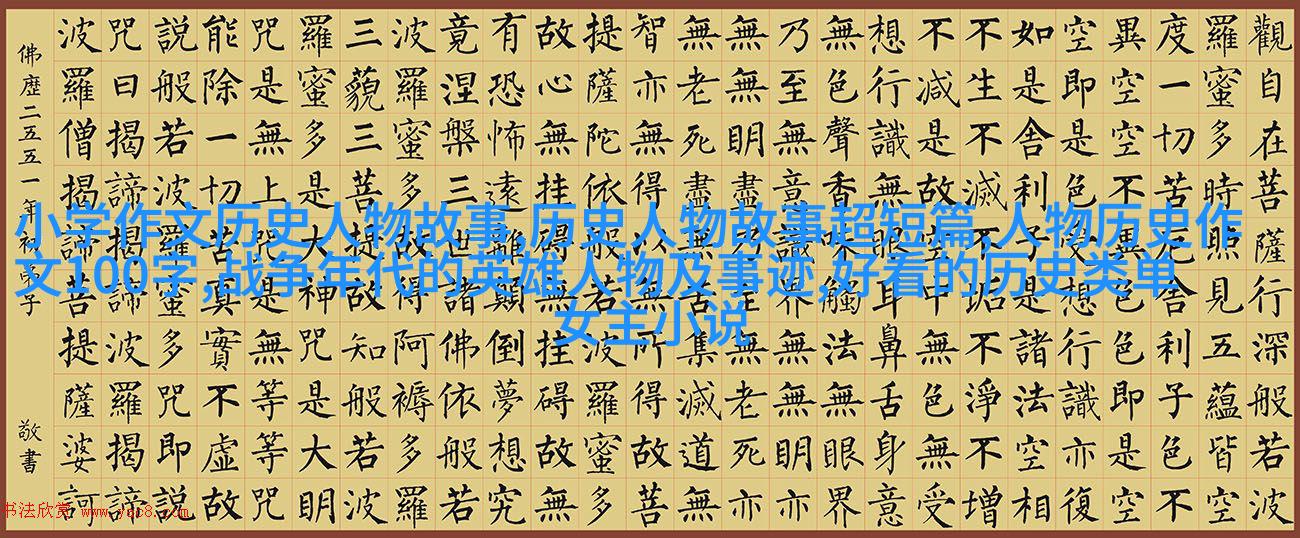 觀自在菩薩行深般若波
羅蜜多時照見五蘊皆空
度一切苦厄舍利子色不
異空空不異色色即是空
空即是色受想行識亦復
如是舍利子是諸法空相
不生不滅不垢不淨不增
不減是故空中無色無受
想行識無眼耳鼻舌身意
無色聲香味觸法無眼界
乃至無意識界無無明亦
無無明盡乃至無老死亦
無老死盡無苦集滅道無
智亦無得以無所得故菩
提薩陀依般若波羅蜜多
故心無挂礙無挂碍故無
有恐怖遠離顛倒夢想究
竟涅槃三世諸佛依般若
波羅蜜多故得阿褥多羅
三藐三菩提故知般若波
羅蜜多是大神咒是大明
咒是無上咒是無等等咒
能除一切苦真實不虛故
説般若波羅蜜多咒即説
咒曰揭諦揭諦波羅揭諦
波羅僧揭諦菩提薩婆訶
佛歷二五五一年
弟子
敬書
小学作文历史人物故事,历史人物故事超短篇,人物历史作
文100字,战争年代的英雄人物及事迹,好看的历史类单
女主小说
书法欣赏 www.yac8.com